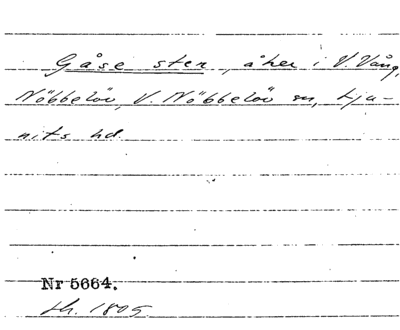 Gåse sten, åker i V. Vång,
Nöbbelöv, V. Nöbbelöv sn, Lju-
nits hd.
Nr 5664.
Lh. 1805